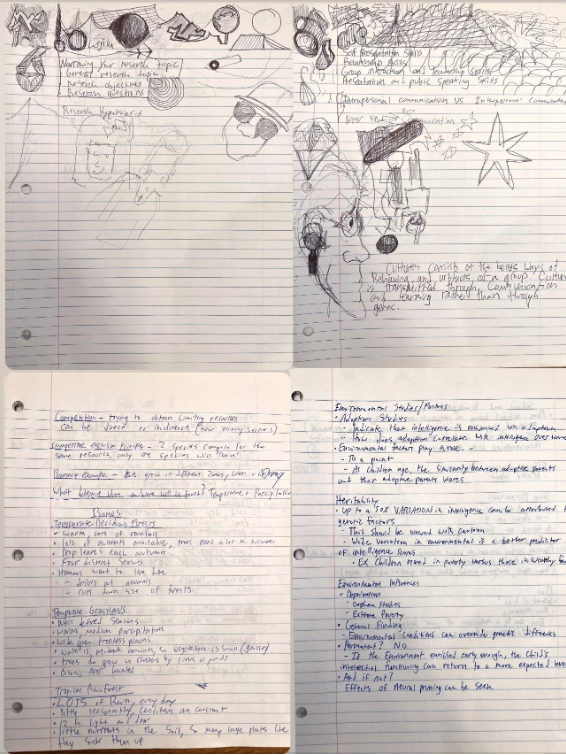 Narrowing Your research topic
General research topic
Research objectives
Research questions
Research Hypothesis
Self Presentation Skills
Relationship skills
Group interaction and leadership skills
Presentation and public speaking skills
Intrapersonal communication vs Interpersonal communication
Culture consist of the beliefs ways of
Behaving, and artifacts of a group. Culture
is transmitted through Communication
and learning rather than through
genetic.
Competition - trying to obtain limiting resources
can be direct or indirect
Competitive Exclusion Principle - 2 species compete for the
same resource, only one species will "win"
Biomes
Temperate Deciduous Forests
• Warm, lots of rainfall
• lots of nutrients available, trees need a lot to survive
• Drop leaves each autumn
• Four distinct Seasons
• Humans want to live here
- drives out animals
- cuts down size of forests
Temperate Grasslands
• Well defined Seasons
• warm, medium precipitation
• wide open treeless plains
• trees do grow in clusters by rivers or ponds
Tropical Rain Forest
• LOTS of Rain, every day
• 12 h light and dark
• little nutrients in the Soil, so many large plants like
they suck them up
Environmental Studies/Factors
• Adoption Studies
- Indicate that intelligence is enhanced when adoption
- How does adoption correlate with intelligence over
• Environmental factors play a role
• To a point
- As Children age, the similarity between adoptive parents
and their adoptive parents wanes
Heritability
• Up to a 50% VARIATION in intelligence can be attributed to
genetic factors
- This should be viewed with caution
- Wide variation in environmental is a better predictor
of intelligence
• EX Children raised in poverty versus those in wealthy
Environmental Influences
• Deprivation
- Orphan Studies
- Extreme Poverty
• General Finding
- Environmental Conditions can override genetic differences
• Permanent? NO
- If the Environment enriched early enough, the Child's
intellectual functioning can return to a more expected level
• And if not?
Effects of Neural pruning can be seen